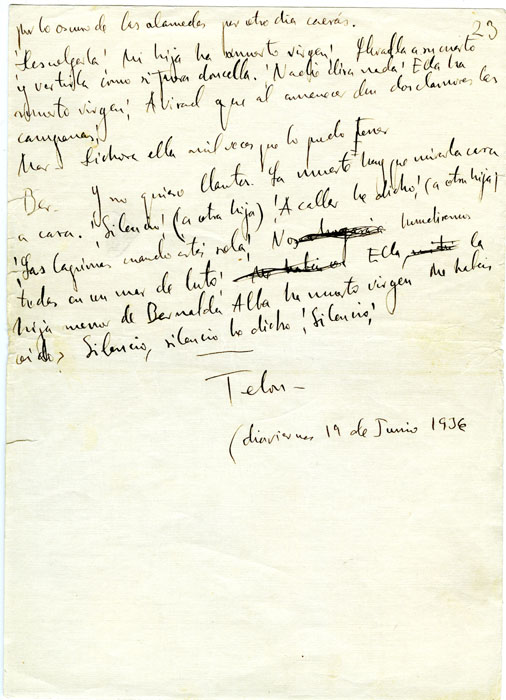 23
por lo oscuro de las alamedas pero otro dia caerás.
¡Descolgarla! Mi hija ha muerto virgen! Llevadla a su cuarto
y vestirla como si fuera doncella. ¡Nadie dira nada! Ella ha
muerto virgen! Avisad que al amanecer den dos clamores las
campanas!
Mar- Dichosa ella mil veces que lo pudo tener
Bar- Y no quiero llantos. La muerte hay que mirarla cara
a cara. ¡Silencio! (a otra hija) ¡A callar he dicho! (a otra hija)
¡Las lagrimas cuando estes sola! Nos hundiremos
todas en un mar de luto! Ella, la
hija menor de Bernalda Alba ha muerto virgen Me habeis
oido? Silencio, silencio he dicho ¡Silencio!
Telon-
(dia viernes 19 de Junio 1936